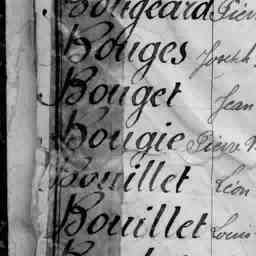 Bougeard Pier
Bouges Joseph
Bouget Jean
Bougie Pierre
Bouillet Léon
Bouillet Louis